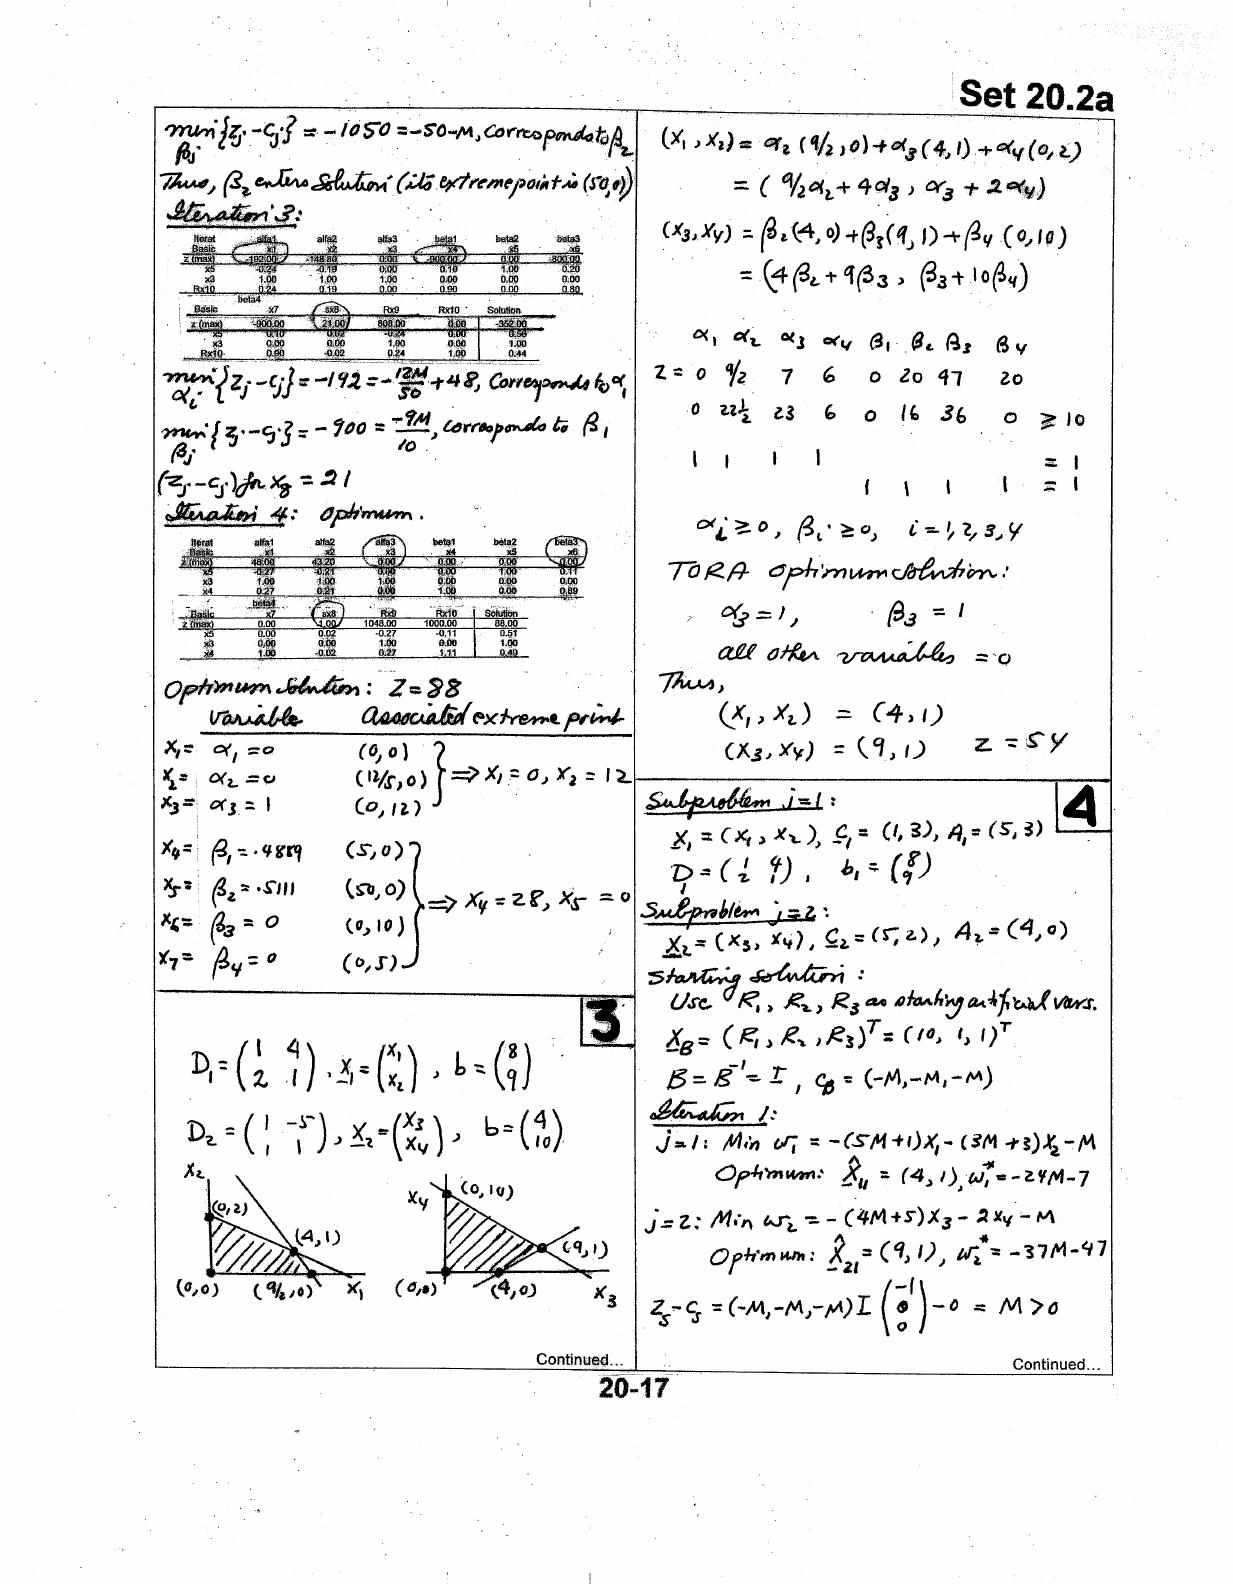 Set 20.2a
min {zj - cj} = -1050 = -50-M, corresponds to β2
βj
Thus, β2 enters solution (its extreme point is (50,0))
Iteration 3:
Iterat alfa1 alfa2 alfa3 beta1 beta2 beta3
Basic x1 x2 x3 x4 x5 x6
z (max) -192.00 -148.80 0.00 -900.00 0.00 -800.00
x5 -0.24 -0.19 0.00 0.10 1.00 0.20
x3 1.00 1.00 1.00 0.00 0.00 0.00
Rx10 0.24 0.19 0.00 0.90 0.00 0.80
beta4
Basic x7 sx8 Rx9 Rx10 Solution
z (max) -900.00 21.00 808.00 0.00 -352.00
x5 0.10 0.02 -0.24 0.00 0.56
x3 0.00 0.00 1.00 0.00 1.00
Rx10 0.90 -0.02 0.24 1.00 0.44
min {zj - cj} = -192 = -12M/50 + 48, corresponds to α1
αi
min {zj - cj} = -900 = -9M/10, corresponds to β1
βj
(zj - cj) for x8 = 21
Iteration 4: optimum.
Iterat alfa1 alfa2 alfa3 beta1 beta2 beta3
Basic x1 x2 x3 x4 x5 x6
z (max) 48.00 43.20 0.00 0.00 0.00 0.00
x5 -0.27 -0.21 0.00 0.00 1.00 0.11
x3 1.00 1.00 1.00 0.00 0.00 0.00
x4 0.27 0.21 0.00 1.00 0.00 0.89
beta4
Basic x7 sx8 Rx9 Rx10 Solution
z (max) 0.00 1.00 1048.00 1000.00 88.00
x5 0.00 0.02 -0.27 -0.11 0.51
x3 0.00 0.00 1.00 0.00 1.00
x4 1.00 -0.02 0.27 1.11 0.49
Optimum solution: Z = 88
Variable Associated extreme point
X1 = α1 = 0 (0,0)
X2 = α2 = 0 (12/5,0) } ⇒ X1 = 0, X2 = 12
X3 = α3 = 1 (0,12)
X4 = β1 = .4889 (5,0)
X5 = β2 = .5111 (50,0) } ⇒ X4 = 28, X5 = 0
X6 = β3 = 0 (0,10)
X7 = β4 = 0 (0,5)
3
D1 = (1 4 / 2 1), X1 = (X1 / X2), b = (8 / 9)
D2 = (1 -5 / 1 1), X2 = (X3 / X4), b = (4 / 10)
X2 (0,2) (4,1) (0,0) (9/2,0) X1
X4 (0,10) (9,1) (0,0) (4,0) X3
Continued...
(X1, X2) = α2 (9/2,0) + α3 (4,1) + α4 (0,2)
= (9/2α2 + 4α3, α3 + 2α4)
(X3, X4) = β2(4,0) + β3(9,1) + β4 (0,10)
= (4β2 + 9β3, β3 + 10β4)
α1 α2 α3 α4 β1 β2 β3 β4
Z = 0 9/2 7 6 0 20 47 20
0 22½ 23 6 0 16 36 0 ≥ 10
1 1 1 1 = 1
1 1 1 1 = 1
αi ≥ 0, βi ≥ 0, i = 1, 2, 3, 4
TORA optimum solution:
α3 = 1, β3 = 1
all other variables = 0
Thus,
(X1, X2) = (4,1)
(X3, X4) = (9,1) Z = 54
4
Subproblem j=1:
X1 = (X1, X2), C1 = (1,3), A1 = (5,3)
D1 = (1 4 / 2 1), b1 = (8 / 9)
Subproblem j=2:
X2 = (X3, X4), C2 = (5,2), A2 = (4,0)
Starting solution:
Use R1, R2, R3 as starting artificial vars.
XB = (R1, R2, R3)T = (10, 1, 1)T
B = B-1 = I, CB = (-M,-M,-M)
Iteration 1:
j=1: Min w1 = -(5M+1)X1 - (3M+3)X2 - M
Optimum: X̂11 = (4,1), w1* = -24M-7
j=2: Min w2 = -(4M+5)X3 - 2X4 - M
Optimum: X̂21 = (9,1), w2* = -37M-47
ZS - CS = (-M,-M,-M) I (-1 / 0 / 0) - 0 = M > 0
Continued...
20-17